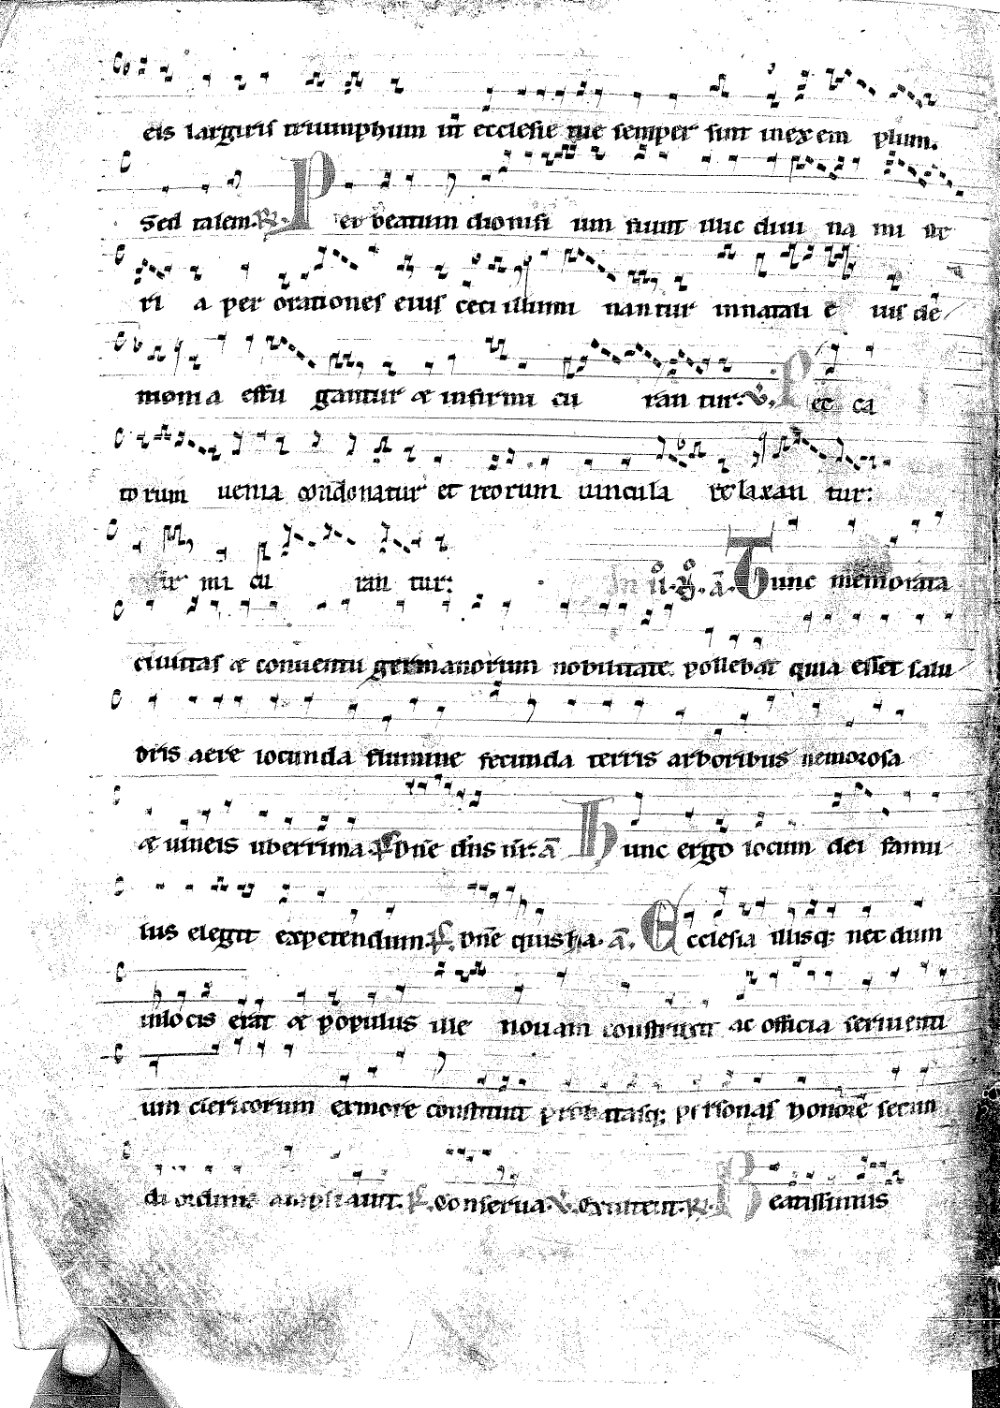 eis largiris triumphum ut ecclesie tue semper sint in exem plum.
Sed talem. R. Per beatum dionisi um fiunt illic diui na mi ste
ri a per orationes eius ceci illumi nantur innatali e ius de
monia effu gantur et infirmi cu ran tur: V. Pec ca
torum uenia condonatur et reorum uincula re laxan tur:
fir mi cu ran tur: In ii. N. a. Tunc memorata
ciuitas et conuentu germanorum nobilitate pollebat quia esset salu
bris aere iocunda flumine fecunda terris arboribus nemorosa
et uineis uberrima. Ps. Dne dns nr: a Hunc ergo locum dei famu
lus elegit expetendum. Ps. Dne quis ha. a. Ecclesia illisq; nec dum
inlocis erat et populus ille nouam construxit ac officia seruienti
um clericorum exmore constituit probatasq; personas honore secun
di ordinis ampliauit. Ps. Conserua. V. Exultent. R. Beatissimus